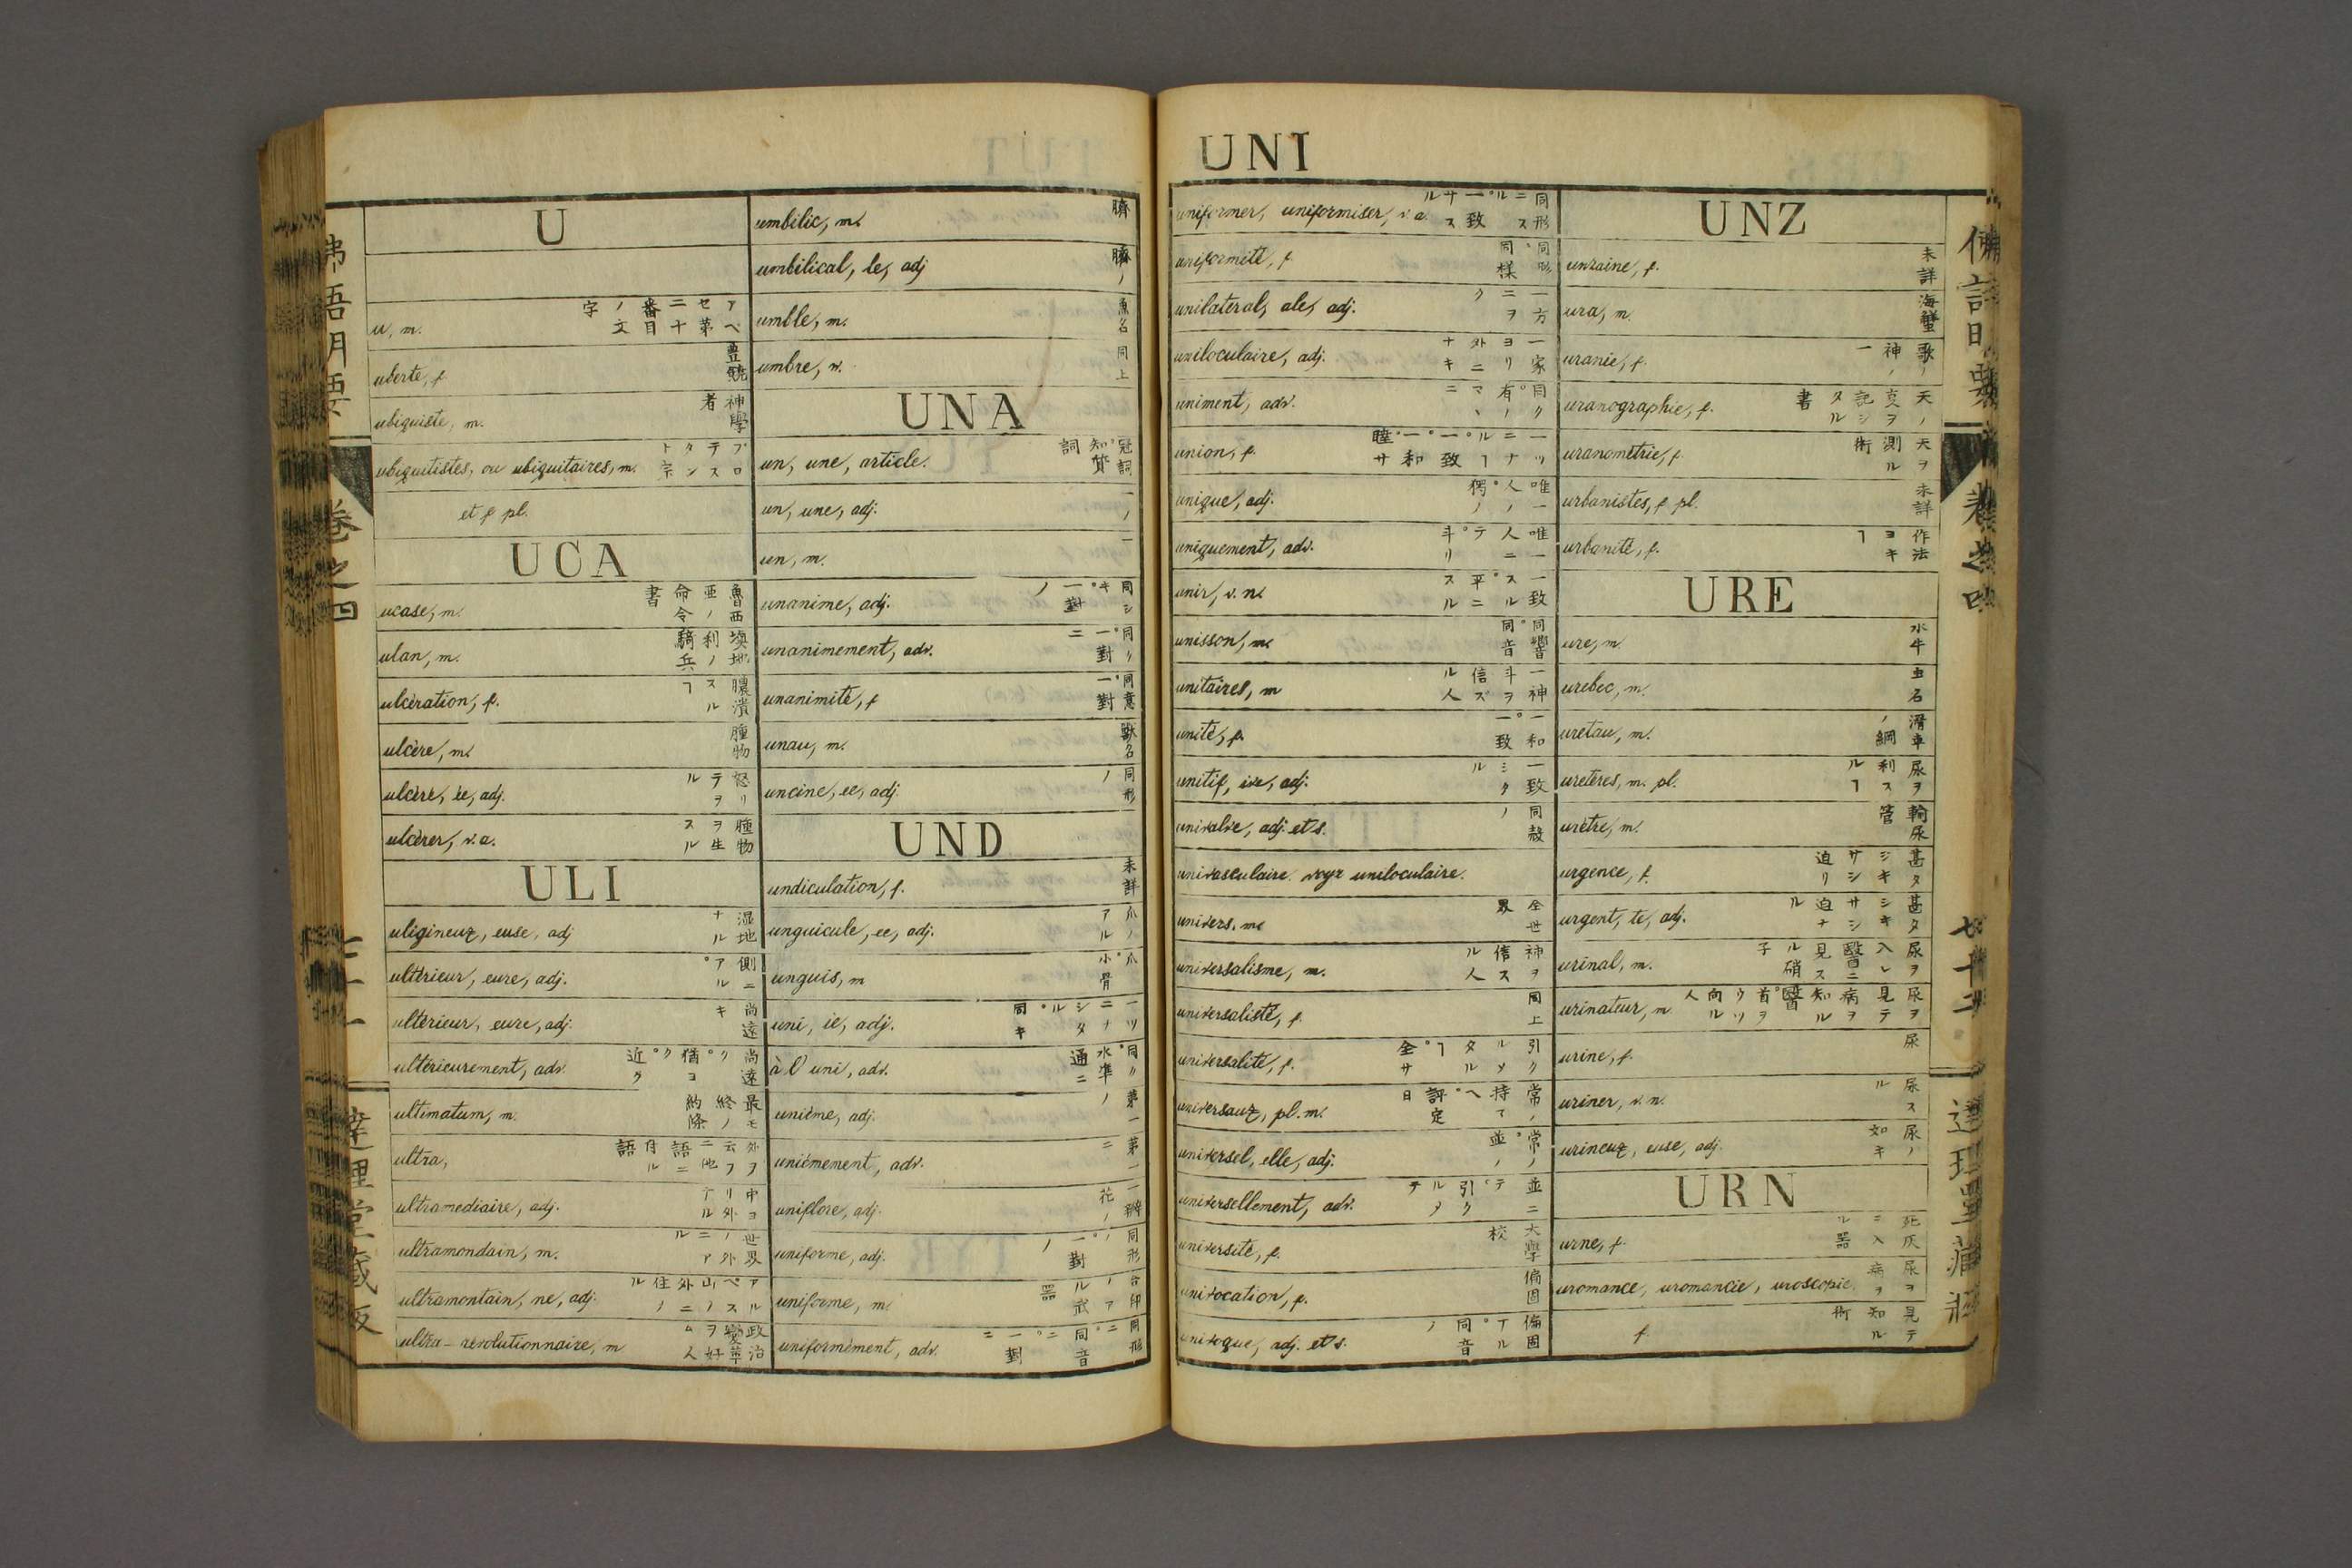 U
u, m.
アベセ第二十番目ノ文字
uberté, f.
豊饒
ubiquiste, m.
神學者
ubiquitistes, ou ubiquitaires, m.
プロテスタント宗
et f pl.
UCA
ucase, m.
魯西亜ノ命令書
ulan, m.
墺地利ノ騎兵
ulcération, f.
膿潰スルヿ
ulcère, m.
腫物
ulcéré, ée, adj.
怒リテヲル
ulcérer, v.a.
腫物ヲ生スル
ULI
uligineux, euse, adj
湿地ナル
ultérieur, eure, adj.
側ニアル
ultérieur, eure, adj.
尚遠キ
ultérieurement, adv.
ultimatum, m.
最モ終ノ約條
ultra,
外ヲ云フ
ultramediaire, adj.
中ヨリ外
ultramondain, m.
世界ノ外ニアル
ultramontain, ne, adj.
アルペス山ノ外ニ住ル
ultra-revolutionnaire, m
政治變革ヲ好ム人
umbilic, m.
臍
umbilical, le, adj
臍ノ
umble, m.
魚名
umbre, v.
同上
UNA
un, une, article.
冠詞
un, une, adj.
一ノ
un, m.
一
unanime, adj.
同シキ。一對ノ
unanimement, adv.
同ク。一對ニ
unanimité, f
同意。一對
unau, m.
獸名
unciné, ée, adj.
同形ノ
UND
undiculation, f.
未詳
unguiculé, ée, adj.
爪ノアル
unguis, m
爪。小骨
uni, ie, adj.
一ツニナシタル。同キ
à l'uni, adv.
同ク。水準通ニ
unième, adj.
第一ノ
unièmement, adv.
第一ニ
uniflore, adj.
一瓣花ノ
uniforme, adj.
同形ノ。一對ノ
uniforme, m.
uniformément, adv.
同形ニ。同音ニ。一對ニ
UNI
uniformer, uniformiser, v.a.
同形ニスル。一致サスル
uniformité, f.
同形。同樣
unilatéral, ale, adj.
一方ニヲク
uniloculaire, adj.
一家ヨリ外ニナキ
uniment, adv.
同ク。有ノマヽニ
union, f.
一ツニナルヿ。一致。一和。睦サ
unique, adj.
唯一人ノ。獨ノ
uniquement, adv.
唯一人ニテ。斗リ
unir, v.n.
一致スル。平ニスル
unisson, m.
同響。同音
unitaires, m
一神斗ヲ信ズル人
unité, f.
一和。一致
unitif, ive, adj.
一致シタル
univalve, adj. et s.
同殻ノ
univasculaire. voyz uniloculaire.
univers, m.
全世界
universalisme, m.
神ヲ信スル人
universalisté, f.
同上
universalité, f.
universaux, pl. m.
universel, elle, adj.
常ノ。並ノ
universellement, adv.
並ニテ。引クルメテ
université, f.
大學校
univocation, f.
偏固
univoque, adj. et s.
UNZ
unzaine, f.
未詳
ura, m.
海蟹
uranie, f.
歌ノ神ノ一
uranographie, f.
天ノヿヲ記シタル書
uranométrie, f
天ヲ測ル術
urbanistes, f pl.
未詳
urbanité, f.
作法ヨキヿ
URE
ure, m.
水牛
urebec, m.
虫名
uretau, m.
滑車ノ綱
uretères, m. pl.
尿ヲ利スルヿ
urètre, m.
輸尿管
urgence, f.
甚タシキサシ迫リ
urgent, te, adj.
甚タシキサシ迫ナル
urinal, m.
尿ヲ入レ醫ニ見スル硝子
urinateur, m
urine, f.
尿
uriner, v.n.
尿スル
urineux, euse, adj.
尿ノ如キ
URN
urne, f.
死灰ニ入ル器
uromance, uromancie, uroscopie.
f.
尿ヲ見テ病ヲ知ル術